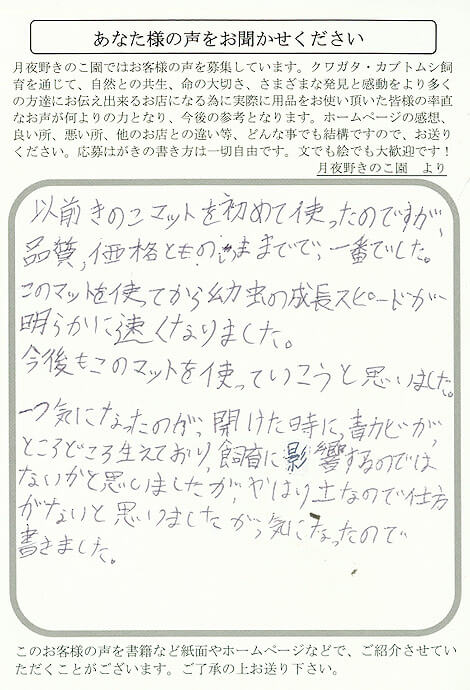 あなた様の声をお聞かせください
月夜野きのこ園ではお客様の声を募集しています。クワガタ・カブトムシ飼
育を通じて、自然との共生、命の大切さ、さまざまな発見と感動をより多く
の方達にお伝え出来るお店になる為に実際に用品をお使い頂いた皆様の率直
なお声が何よりの力となり、今後の参考となります。ホームページの感想、
良い所、悪い所、他のお店との違い等、どんな事でも結構ですので、お送り
ください。応募はがきの書き方は一切自由です。文でも絵でも大歓迎です！
月夜野きのこ園　より
以前きのこマットを初めて使ったのですが、
品質、価格ともの今までで、一番でした。
このマットを使ってから幼虫の成長スピードが
明らかに速くなりました。
今後もこのマットを使っていこうと思いました。
一つ気になったのが、開けた時に、青カビが、
ところどころ生えており、飼育に影響するのでは
ないかと思いましたが、やはり土なので仕方
がないと思いましたがっ気になったので
書きました。
このお客様の声を書籍など紙面やホームページなどで、ご紹介させてい
ただくことがございます。ご了承の上お送り下さい。